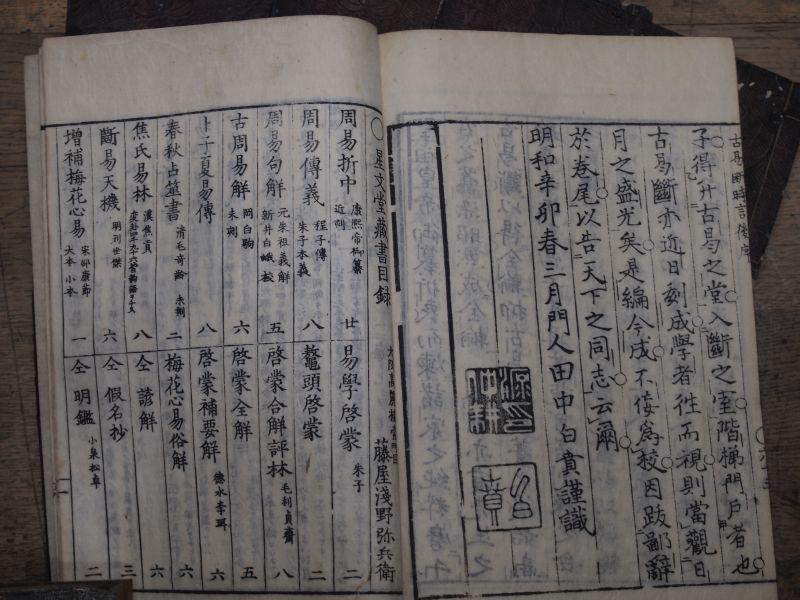 古易斷時言後序
子得升古易之堂入斷之室階梯門戶者也
古易斷亦近日刻成學者徃而視則當觀日
月之盛光矣是編今成不佞為校因跋鄙辭
於卷尾以告天下之同志云爾
明和辛卯春三月門人田中白賁謹識
白賁
〇星文堂藏書目録 藤屋淺野弥兵衛
周易折中 康熙帝御纂 近刻 廿
易學啓蒙 朱子 二
周易傳義 程子傳 朱子本義 八
鼇頭啓蒙 二
周易句解 元朱祖義解 新井白蛾校 五
啓蒙合解評林 毛利貞齋 八
古周易解 岡白駒 未刻 六
啓蒙全解 五
卜子夏易傳 八
啓蒙補要解 德永李珥 六
春秋占筮書 清毛奇齡 未刻 二
梅花心易俗解 六
焦氏易林 漢焦貢 八
仝 諺解 六
斷易天機 明刊世傑 六
仝 假名抄 三
增補梅花心易 宋邵康節 大本 小本 一
仝 明鑑 小泉松卓 二